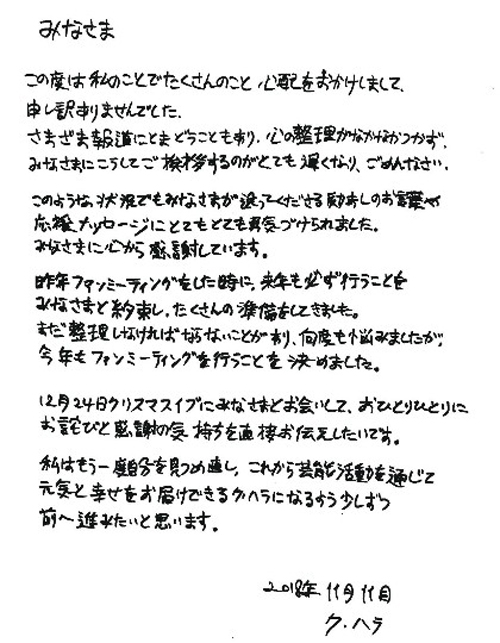 みなさま
この度は私のことでたくさんのこと心配をおかけしまして、
申し訳ありませんでした。
さまざま報道にとまどうこともあり、心の整理がなかなかつかず、
みなさまにこうしてご挨拶するのがとても遅くなり、ごめんなさい。
このような状況でもみなさまが送ってくださる励ましのお言葉や
応援メッセージにとてもとても勇気づけられました。
みなさまに心から感謝しています。
昨年ファンミーティングをした時に、来年も必ず行うことを
みなさまと約束し、たくさんの準備をしてきました。
まだ整理しなければならないことがあり、何度も悩みましたが、
今年もファンミーティングを行うことを決めました。
12月24日クリスマスイブにみなさまとお会いして、おひとりひとりに
お詫びと感謝の気持ちを直接お伝えしたいです。
私はもう一度自分を見つめ直し、これから芸能活動を通じて
元気と幸せをお届けできるク・ハラになるよう少しずつ
前へ進みたいと思います。
2018年 11月 11日
ク・ハラ